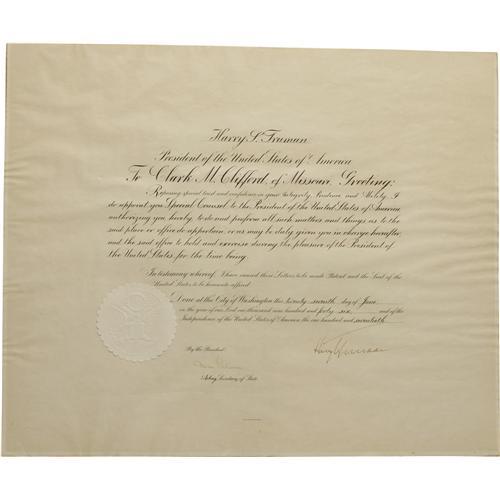 Harry S. Truman
President of the United States of America
To Clark M. Clifford, of Missouri, Greeting:
Reposing special trust and confidence in your Integrity, Prudence and Ability, I
do appoint you Special Counsel to the President of the United States of America
authorizing you hereby to do and perform all such matters and things as to the
said place or office do appertain, or as may be duly given you in charge hereafter,
and the said office to hold and exercise during the pleasure of the President of
the United States for the time being.
In testimony whereof, I have caused these Letters to be made Patent and the Seal of the
United States to be hereunto affixed.
Done at the City of Washington this twenty seventh day of June
in the year of our Lord one thousand nine hundred and forty six, and of the
Independence of the United States of America the one hundred and seventieth.
By the President:
Harry Truman
Acting Secretary of State.